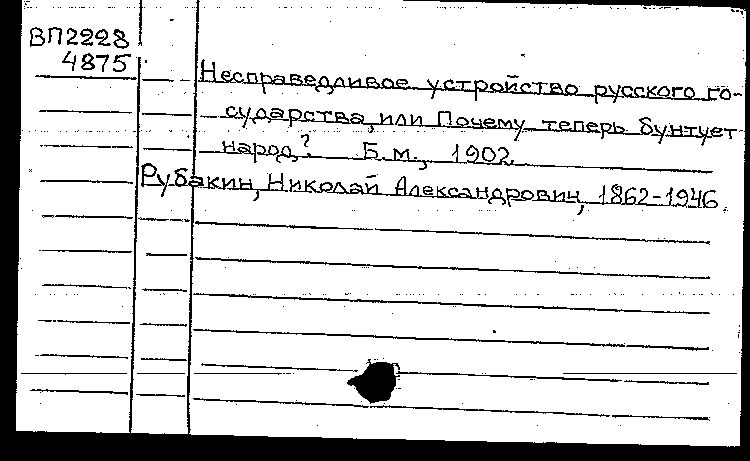 ВП2228
4875
Несправедливое устройство русского го-
сударства, или Почему теперь бунтует
народ? Б.м., 1902.
Рубакин, Николай Александрович, 1862-1946.